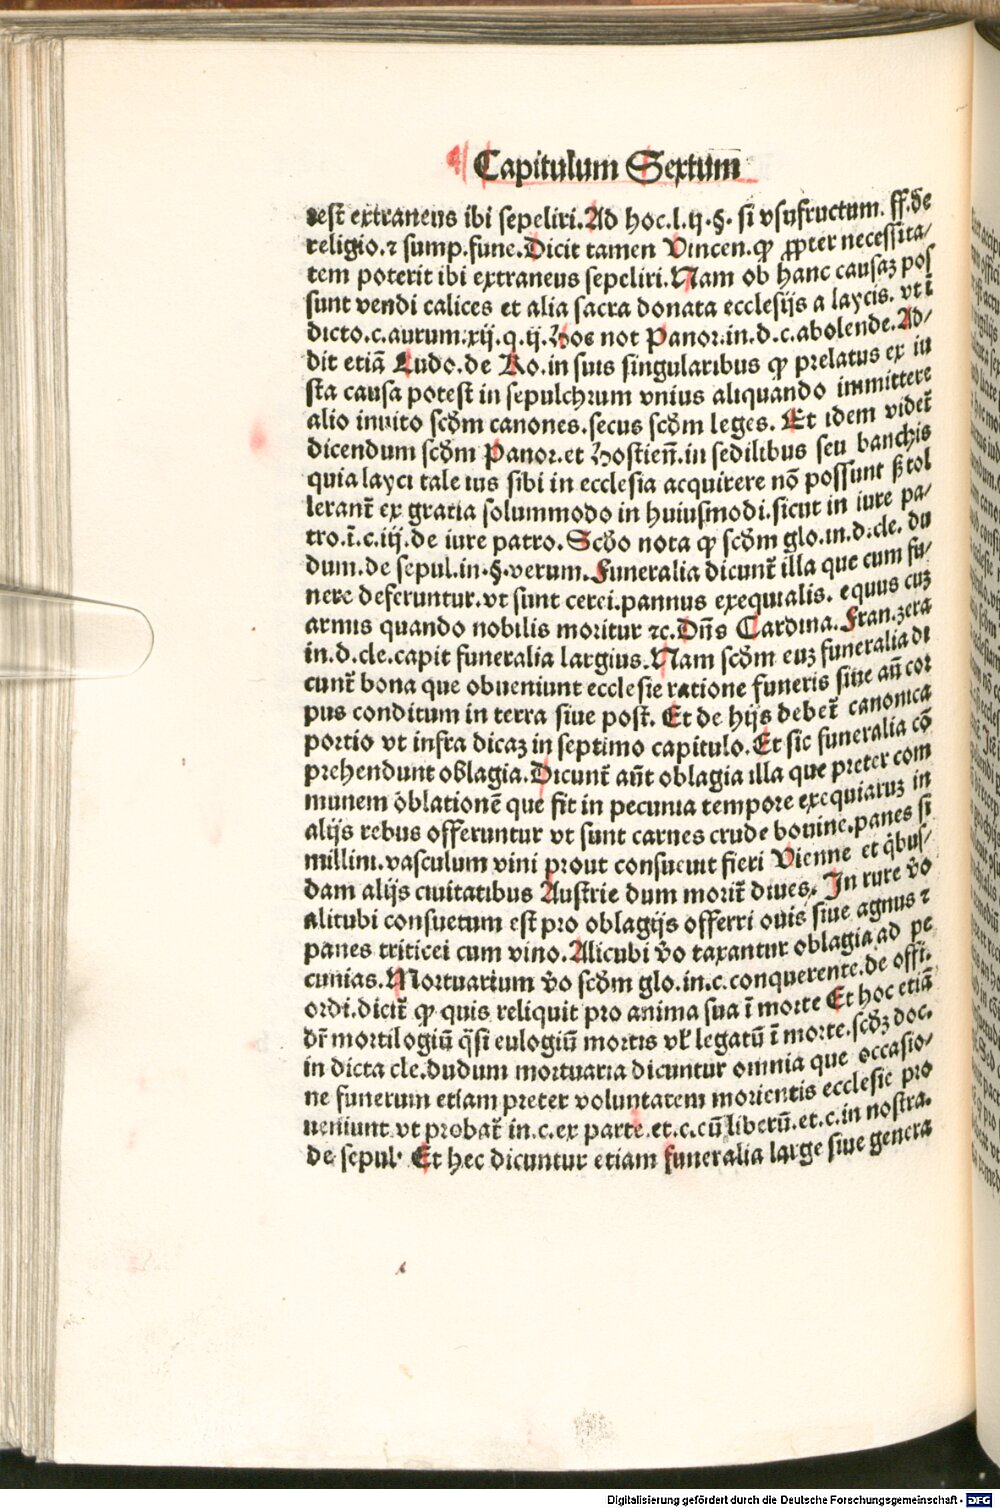 Capitulum Sextum
rest̄ extraneus ibi sepeliri. Ad hoc.l.ij.§. si vsufructum. ff.de
religio.⁊ sump.fune. Dicit tamen Vincen. ꝙ ꝓpter necessita/
tem poterit ibi extraneus sepeliri. Nam ob hanc causaꝫ pos
sunt vendi calices et alia sacra donata ecclesijs a laycis. vt ī
dicto.c.aurum.xij.q.ij. Hoc not Panor.in.d.c.abolende. Ad/
dit etiā Ludo.de Ro.in suis singularibus ꝙ prelatus ex iu
sta causa potest in sepulchrum vnius aliquando immittere
alio inuito scđm canones. secus scđm leges. Et idem videt᷑
dicendum scđm Panor.et Hostien̄.in sedilibus seu banchis
quia layci tale ius sibi in ecclesia acquirere nō possunt ß tol
lerant᷑ ex gratia solummodo in huiusmodi. sicut in iure pa/
tro.ī.c.iij.de iure patro. Scđo nota ꝙ scđm glo.in.d.cle. du
dum.de sepul.in.§.verum. Funeralia dicunt᷑ illa que cum fu/
nere deferuntur. vt sunt cerei.pannus exequialis. equus cuꝫ
armis quando nobilis moritur ⁊c. Dn̄s Cardina. Fran.zera
in.d.cle.capit funeralia largius. Nam scđm euꝫ funeralia di
cunt᷑ bona que obueniunt ecclesie ratione funeris siue an̄ cor
pus conditum in terra siue post. Et de hijs debet᷑ canonica
portio vt infra dicaꝫ in septimo capitulo. Et sic funeralia cō
prehendunt oblagia. Dicunt᷑ aūt oblagia illa que preter com
munem oblationē que fit in pecunia tempore exequiaruꝫ in
alijs rebus offeruntur vt sunt carnes crude bouine.panes si
millini.vasculum vini prout consueuit fieri Vienne et q̇bus/
dam alijs ciuitatibus Austrie dum morit᷑ diues. In rure v̄o
alitubi consuetum est pro oblagijs offerri ouis siue agnus ⁊
panes triticei cum vino. Alicubi v̄o taxantur oblagia ad pe
cunias. Mortuarium v̄o scđm glo.in.c.conquerente.de offi.
ordi.dicit᷑ ꝙ quis reliquit pro anima sua ī morte Et hoc etiā
dr̄ mortilogiū q̄si eulogiū mortis vł legatū ī morte. scđꝫ doc.
in dicta cle.dudum mortuaria dicuntur omnia que occasio/
ne funerum etiam preter voluntatem morientis ecclesie pro
ueniunt vt probat᷑ in.c.ex parte.et.c.cū liberū.et.c.in nostra.
de sepul. Et hec dicuntur etiam funeralia large siue genera
Digitalisierung gefördert durch die Deutsche Forschungsgemeinschaft - DFG